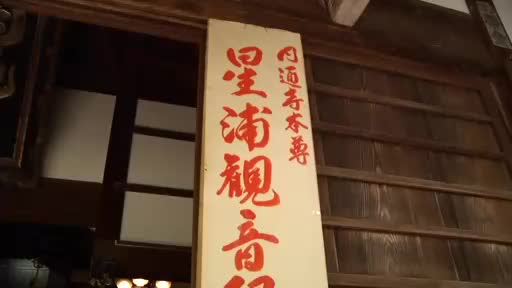 円通寺本尊
星浦観音